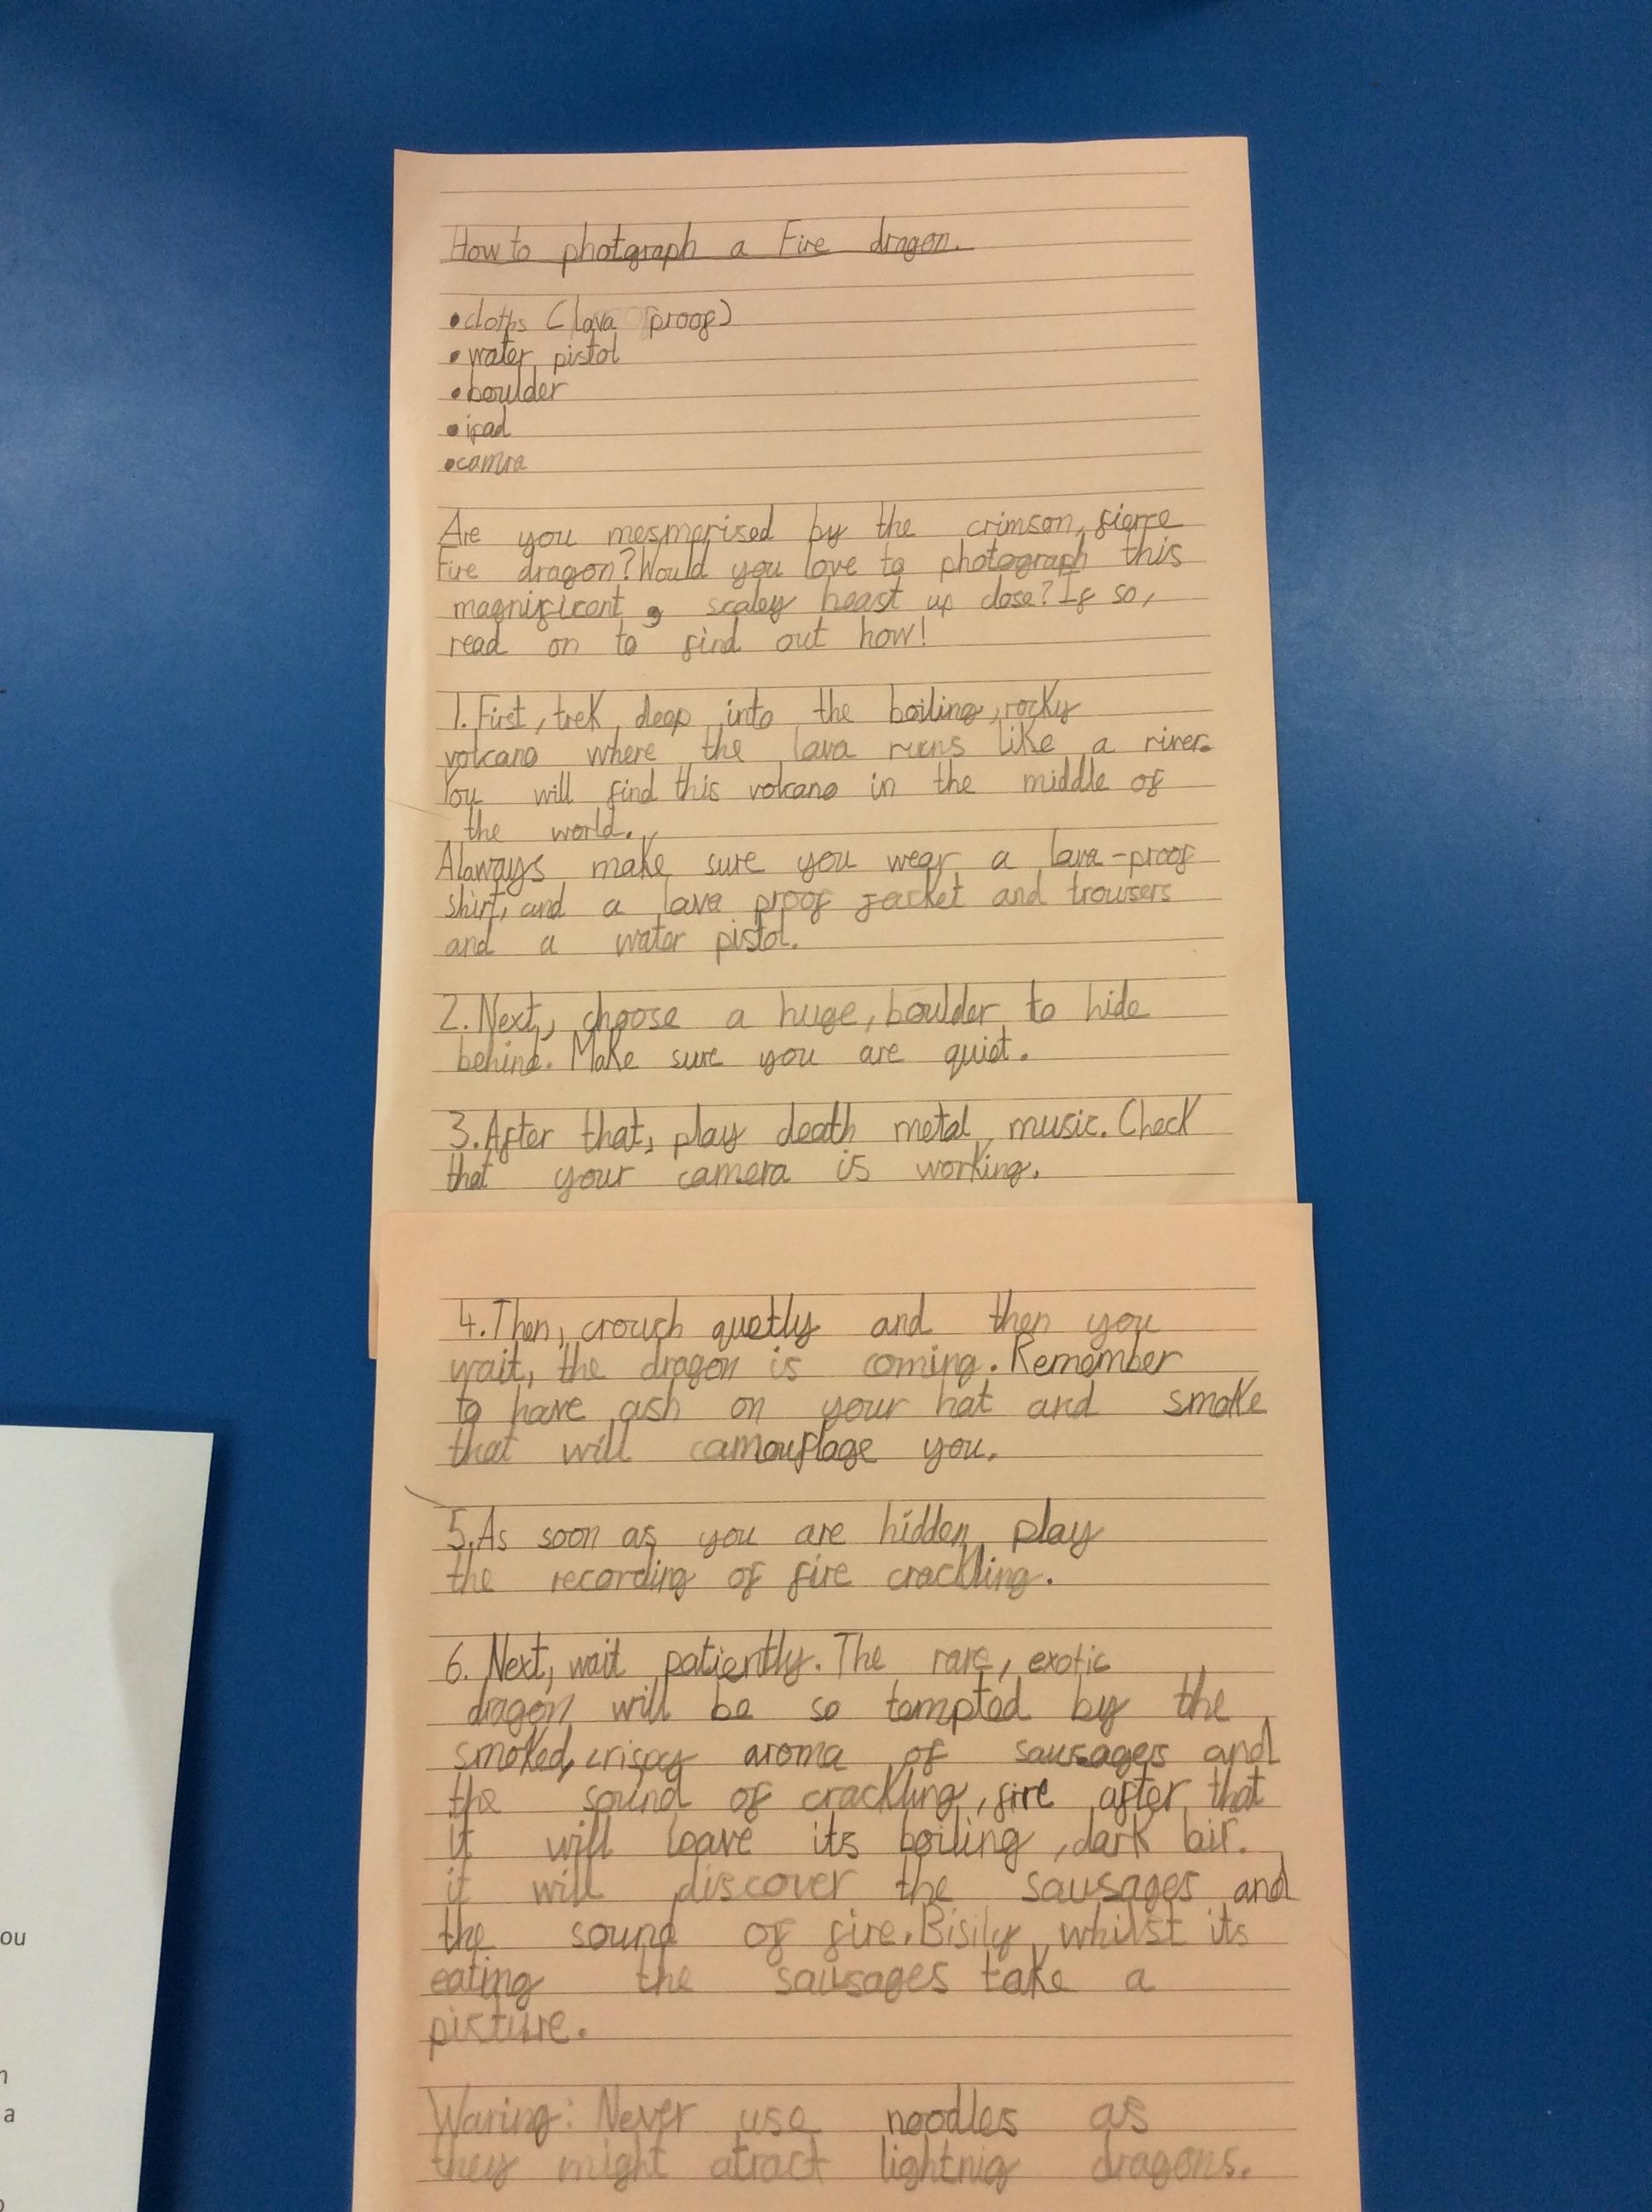 How to photgraph a Fire dragon.
•cloths (lava proof)
•water pistol
•boulder
•ipad
•camra
Are you mesmerised by the crimson, fierce
Fire dragon? Would you love to photograph this
magnificent, scaley beast up close? If so,
read on to find out how!
1. First, trek deep into the boiling, rocky
volcano where the lava runs like a river.
You will find this volcano in the middle of
the world.
Alaways make sure you wear a lava-proof
shirt, and a lava proof jacket and trousers
and a water pistol.
2. Next, choose a huge, boulder to hide
behind. Make sure you are quiet.
3. After that, play death metal music. Check
that your camera is working.
4. Then, crouch quetly and then you
wait, the dragon is coming. Remember
to have ash on your hat and smoke
that will camouflage you.
5. As soon as you are hidden play
the recording of fire crackling.
6. Next, wait patiently. The rare, exotic
dragon will be so tempted by the
smoked, crispy aroma of sausages and
the sound of crackling, fire after that
it will leave its boiling, dark
it will discover the sausages and
the sound of fire. Bisily whilst its
eating the sausages take a
picture.
Waring: Never use noodles as
they might atract lightnig dragons.
ou
a